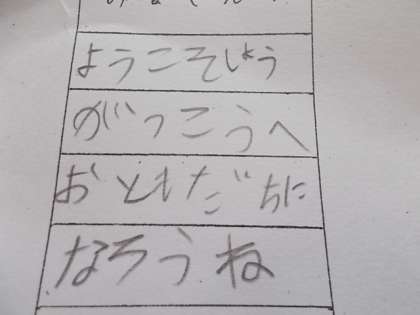 ようこそしょう
がっこうへ
おともだちに
なろうね